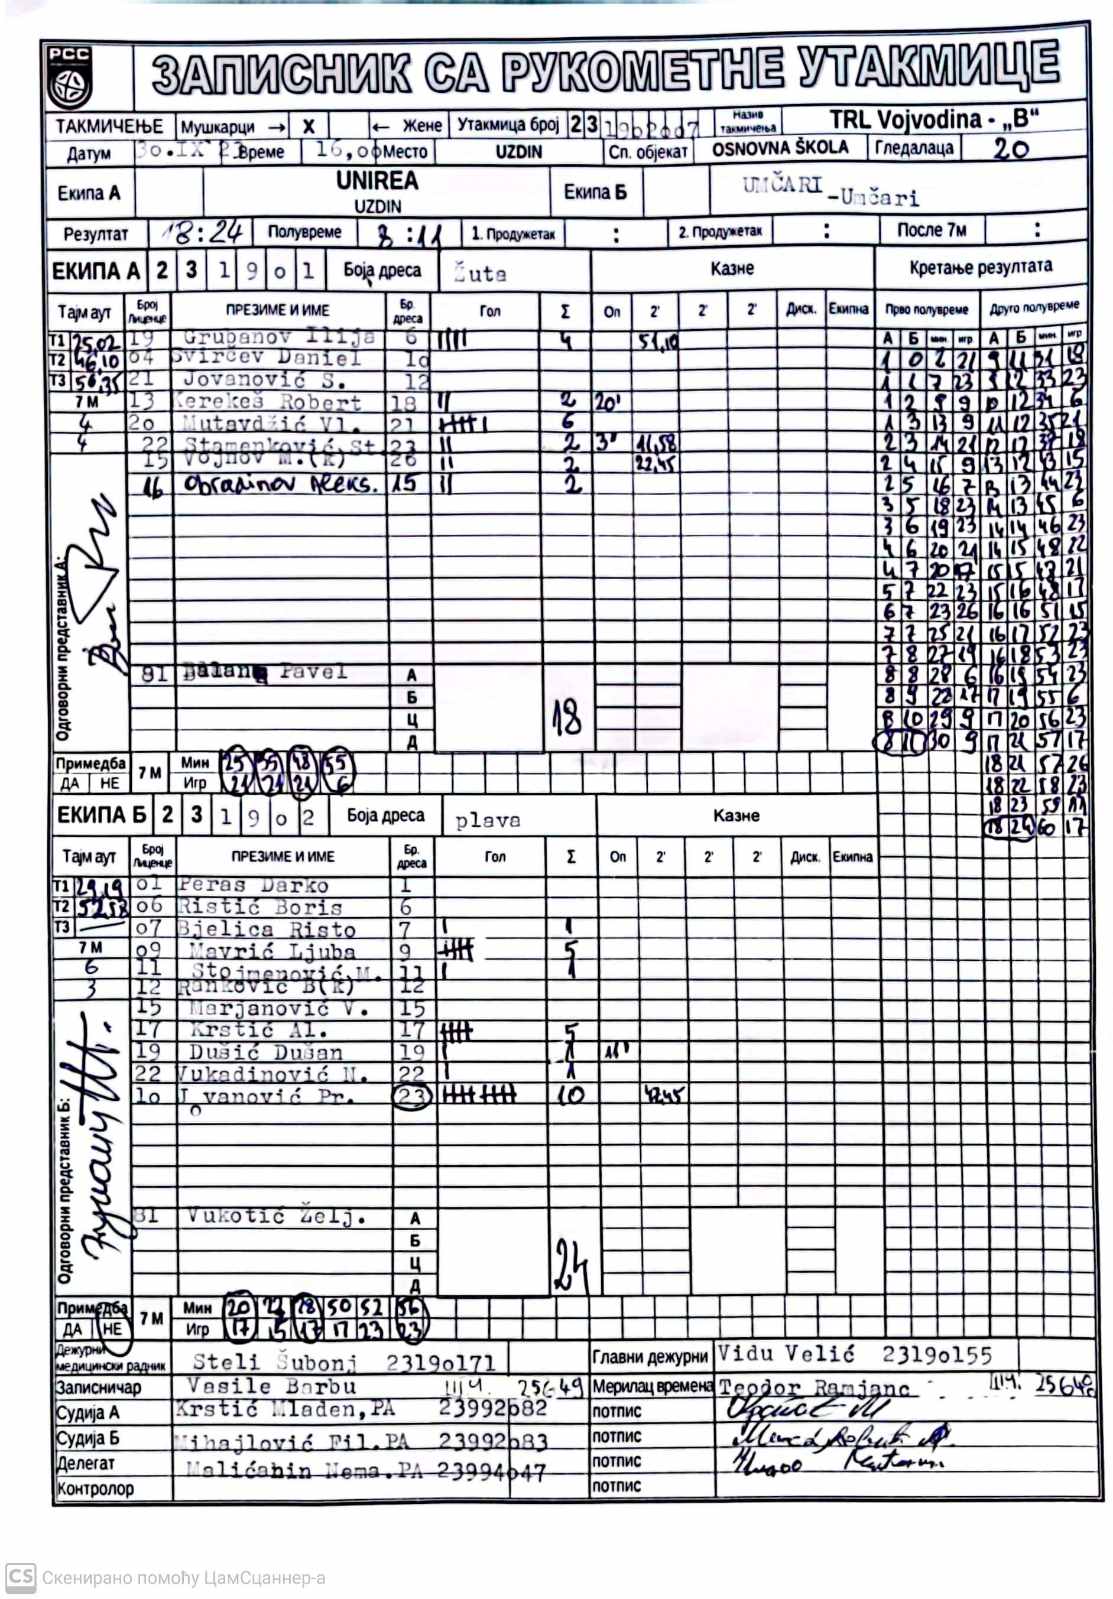 РСС
ЗАПИСНИК СА РУКОМЕТНЕ УТАКМИЦЕ
ТАКМИЧЕЊЕ Мушкарци → X ← Жене Утакмица број 2 3 19o2oo7 Назив такмичења TRL Vojvodina - „B“
Датум 3o.IX 23 Време 16,oo Место UZDIN Сп. објекат OSNOVNA ŠKOLA Гледалаца 20
Екипа А UNIREA UZDIN Екипа Б UMČARI -Umčari
Резултат 18:24 Полувреме 8:11 1. Продужетак : 2. Продужетак : После 7м :
ЕКИПА А 2 3 1 9 o 1 Боја дреса Žuta Казне Кретање резултата
Тајм аут Број Лиценце ПРЕЗИМЕ И ИМЕ Бр. дреса Гол Σ Оп 2' 2' 2' Диск. Екипна Прво полувреме Друго полувреме
А Б мин игр А Б мин игр
T1 25,02 19 Grubanov Ilija 6 IIII 4 51,10
T2 46,10 o4 Svirčev Daniel 1o
T3 56,35 21 Jovanović S. 12
7 М 13 Kerekeš Robert 18 II 2 20'
4 2o Mutavdžić Vl. 21 IIIII I 6
4 22 Stamenković St 23 II 2 3' 11,58
15 Vojnov M.(k) 26 II 2 22,45
16 Obradinov Aleks. 15 II 2
1 0 2 21 9 11 31 18
1 1 7 23 9 12 33 23
1 2 8 9 10 12 34 6
1 3 13 9 11 12 35 21
2 3 14 21 12 12 37 18
2 4 15 9 13 12 43 15
2 5 16 7 13 13 44 23
3 5 18 23 14 13 45 6
3 6 19 23 14 14 46 23
4 6 20 21 14 15 48 22
4 7 20 17 15 15 48 21
5 7 22 23 15 16 48 17
6 7 23 26 16 16 51 15
7 7 25 21 16 17 52 23
7 8 27 19 16 18 53 23
8 8 28 6 16 19 54 23
8 9 28 17 17 19 55 6
8 10 29 9 17 20 56 23
8 11 30 9 17 21 57 17
18 21 57 26
18 22 58 23
18 23 59 11
18 24 60 17
Одговорни представник А:
81 Balan Pavel А
Б
Ц
Д
18
Примедба ДА НЕ 7 М Мин 25 35 48 55
Игр 21 21 21 6
ЕКИПА Б 2 3 1 9 o 2 Боја дреса plava Казне
Тајм аут Број Лиценце ПРЕЗИМЕ И ИМЕ Бр. дреса Гол Σ Оп 2' 2' 2' Диск. Екипна
T1 29,19 o1 Peras Darko 1
T2 52,58 o6 Ristić Boris 6
T3 — o7 Bjelica Risto 7 I 1
7 М o9 Mavrić Ljuba 9 IIIII 5
6 11 Stojmenović M. 11 I 1
3 12 Ranković B(k) 12
15 Marjanović V. 15
17 Krstić Al. 17 IIIII 5
19 Dušić Dušan 19 I 1 11'
22 Vukadinović N. 22 I 1
1o Jovanović Pr. 23 IIIII IIIII 10 42,45
Одговорни представник Б:
81 Vukotić Želj. А
Б
Ц
Д
24
Примедба ДА НЕ 7 М Мин 20 22 28 50 52 56
Игр 17 15 17 17 23 23
Дежурни медицински радник Steli Šubonj 2319o171 Главни дежурни Vidu Velić 2319o155
Записничар Vasile Barbu 25649 Мерилац времена Teodor Ramjanc
Судија А Krstić Mladen,PA 23992o82 потпис
Судија Б Mihajlović Fil.PA 23992o83 потпис
Делегат Malićahin Nema.PA 23994o47 потпис
Контролор потпис
CS Скенирано помоћу ЦамСцаннер-а